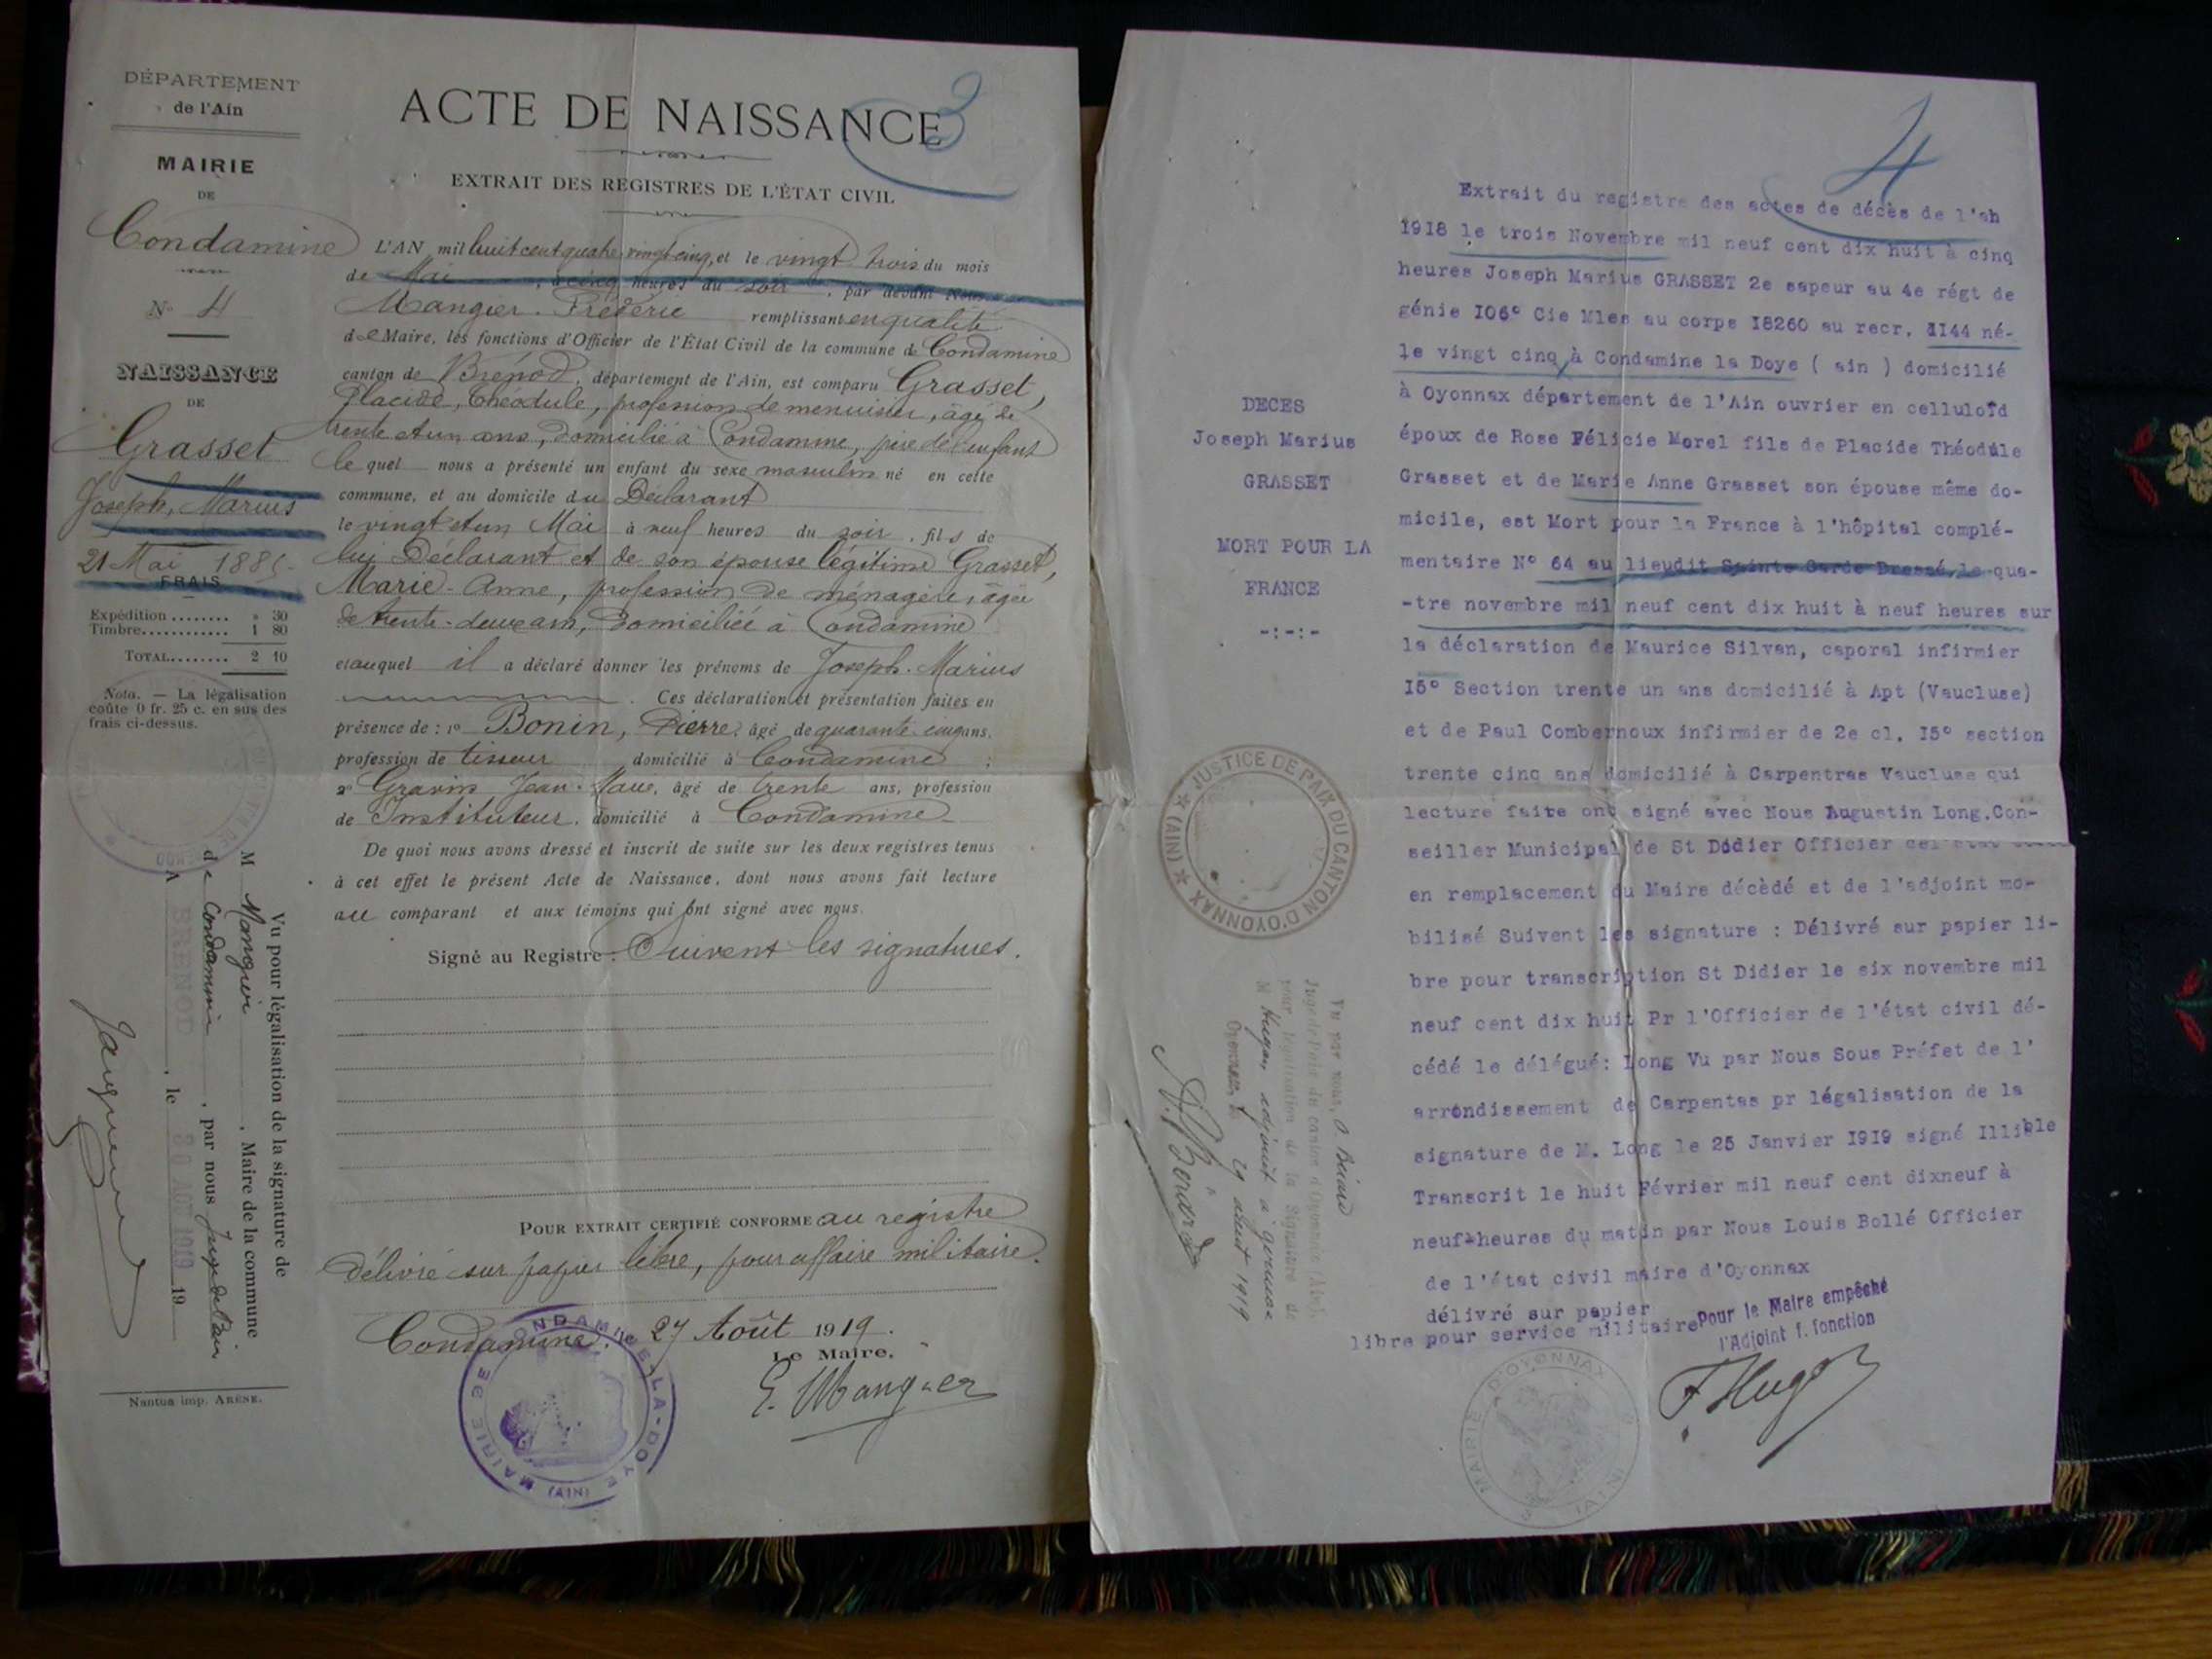 DÉPARTEMENT
de l'Ain
MAIRIE
DE
Condamine
No 4
NAISSANCE
DE
Grasset
Joseph, Marius
21 Mai 1885
FRAIS
Expédition ........ » 30
Timbre............ 1 80
TOTAL........ 2 10
Nota. — La légalisation
coûte 0 fr. 25 c. en sus des
frais ci-dessus.
Vu pour légalisation de la signature de
M Mangier, Maire de la commune
de Condamine, par nous Juge de Paix
A BRENOD, le 30 AOUT 1919 19
Nantua imp. ARÈNE.
ACTE DE NAISSANCE
3
EXTRAIT DES REGISTRES DE L'ÉTAT CIVIL
L'AN mil huit cent quatre vingt cinq, et le vingt trois du mois
de Mai, à cinq heures du soir, par devant Nous
Mangier Frédéric remplissant en qualité
de Maire, les fonctions d'Officier de l'État Civil de la commune de Condamine
canton de Brénod, département de l'Ain, est comparu Grasset,
Placide, Théodule, profession de menuisier, âgé de
trente et un ans, domicilié à Condamine, père de l'enfant
le quel nous a présenté un enfant du sexe masculin né en cette
commune, et au domicile du Déclarant
le vingt et un Mai à neuf heures du soir, fils de
lui Déclarant et de son épouse légitime Grasset,
Marie-Anne, profession de ménagère, âgée
de trente-deux ans, domiciliée à Condamine
et auquel il a déclaré donner les prénoms de Joseph-Marius
Ces déclaration et présentation faites en
présence de : 1o Bonin, Pierre, âgé de quarante cinq ans,
profession de tisseur domicilié à Condamine ;
2o Jean-Marie, âgé de trente ans, profession
de Instituteur, domicilié à Condamine
De quoi nous avons dressé et inscrit de suite sur les deux registres tenus
à cet effet le présent Acte de Naissance, dont nous avons fait lecture
au comparant et aux témoins qui ont signé avec nous.
Signé au Registre : Suivent les signatures.
POUR EXTRAIT CERTIFIÉ CONFORME au registre
Délivré sur papier libre, pour affaire militaire.
Condamine, 27 Août 1919.
Le Maire,
E. Mangier
MAIRIE DE CONDAMINE-LA-DOYE (AIN)
4
Extrait du registre des actes de décès de l'an
1918 le trois Novembre mil neuf cent dix huit à cinq
heures Joseph Marius GRASSET 2e sapeur au 4e régt de
génie I06° Cie Mles au corps I8260 au recr. 1144 né-
le vingt cinq à Condamine la Doye ( ain ) domicilié
à Oyonnax département de l'Ain ouvrier en celluloïd
époux de Rose Félicie Morel fils de Placide Théodule
Grasset et de Marie Anne Grasset son épouse même do-
micile, est Mort pour la France à l'hôpital complé-
mentaire N° 64 au lieudit Sainte Garde Dressé, le qua-
-tre novembre mil neuf cent dix huit à neuf heures sur
la déclaration de Maurice Silvan, caporal infirmier
I5° Section trente un ans domicilié à Apt (Vaucluse)
et de Paul Combernoux infirmier de 2e cl. I5° section
trente cinq ans domicilié à Carpentras Vaucluse qui
lecture faite ont signé avec Nous Augustin Long.Con-
seiller Municipal de St Didier Officier
en remplacement du Maire décèdé et de l'adjoint mo-
bilisé Suivent les signature : Délivré sur papier li-
bre pour transcription St Didier le six novembre mil
neuf cent dix huit Pr l'Officier de l'état civil dé-
cédé le délégué: Long Vu par Nous Sous Préfet de l'
arrondissement de Carpentas pr légalisation de la
signature de M. Long le 25 Janvier I9I9 signé Illible
Transcrit le huit Février mil neuf cent dixneuf à
neuf heures du matin par Nous Louis Bollé Officier
de l'état civil maire d'Oyonnax
délivré sur papier
libre pour service militaire
Pour le Maire empêché
l'Adjoint f. fonction
F. Hugon
MAIRIE D'OYONNAX (AIN)
DECES
Joseph Marius
GRASSET
MORT POUR LA
FRANCE
-:-:-
JUSTICE DE PAIX DU CANTON D'OYONNAX (AIN)
Vu par nous, A. Bérard
Juge de Paix du canton d'Oyonnax (Ain),
pour légalisation de la Signature de
M Hugon, adjoint à Oyonnax
Oyonnax, le 29 août 1919
A. Bérard